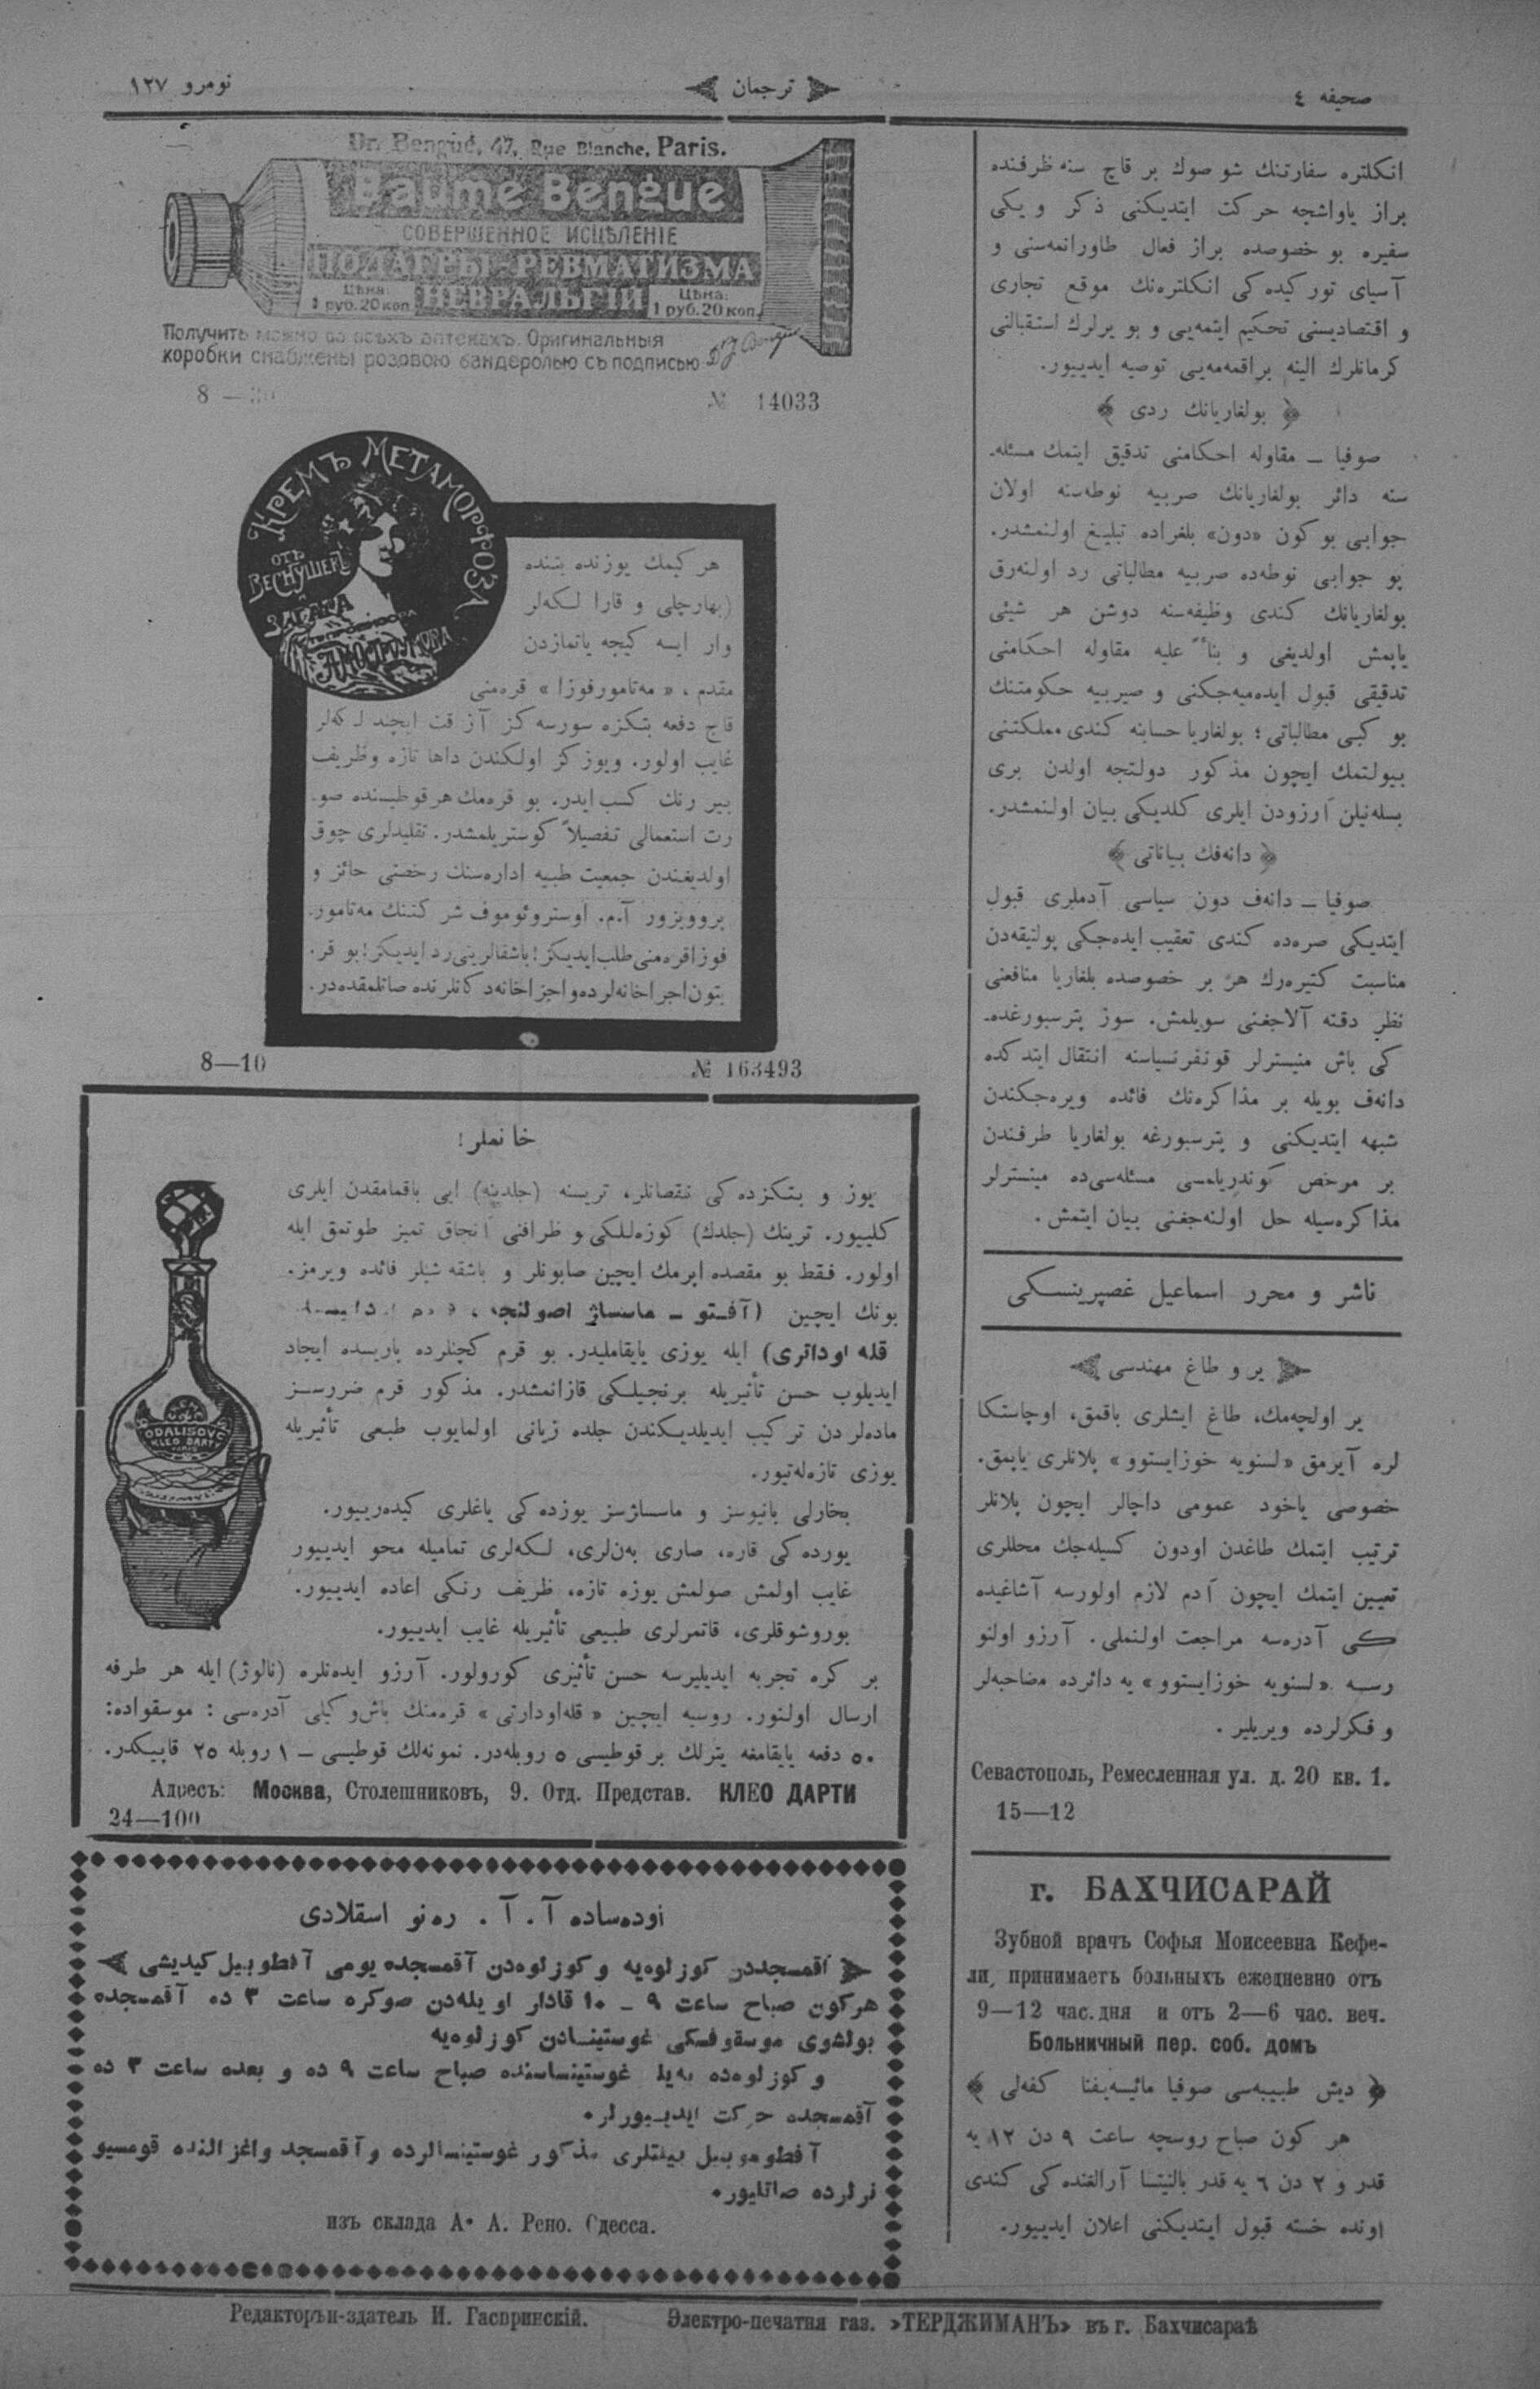 صحيفه ٤
ترجمان
نومرو ١٢٧
انكلتره سفارتنك شو صوك بر قاچ سنه ظرفنده
براز ياواشجه حركت ايتديكنى ذكر و يكى
سفيره بو خصوصده براز فعال طاورانمه‌سنى و
آسياى توركيده‌كى انكلتره‌نك موقع تجارى
و اقتصاديسنى تحكيم ايتمه‌يى و بو يرلرك استقبالنى
كرمانلرك الينه براقمه‌مه‌يى توصيه ايدييور.
﴿ بولغاريانك ردى ﴾
صوفيا ـ مقاوله احكامنى تدقيق ايتمك مسئله‌ـ
سنه دائر بولغاريانك صربيه نوطه‌سنه اولان
جوابى بوكون «دون» بلغراده تبليغ اولنمشدر.
بو جوابى نوطه‌ده صربيه مطالباتى رد اولنه‌رق
بولغاريانك كندى وظيفه‌سنه دوشن هر شيئى
ياپمش اولديغى و بناءً عليه مقاوله احكامنى
تدقيقى قبول ايده‌ميه‌جكنى و صيربيه حكومتنك
بو كبى مطالباتى؛ بولغاريا حسابنه كندى مملكتنى
بيولتمك ايچون مذكور دولتجه اولدن برى
بسله‌نيلن آرزودن ايلرى كلديكى بيان اولنمشدر.
﴿ دانه‌فك بياناتى ﴾
صوفيا ـ دانه‌ف دون سياسى آدملرى قبول
ايتديكى صره‌ده كندى تعقيب ايده‌جكى پولتيقه‌دن
مناسبت كتيره‌رك هر بر خصوصده بلغاريا منافعنى
نظر دقته آلاجغنى سويلمش. سوز پترسبورغده‌ـ
كى باش منيسترلر قونفرنسياسنه انتقال ايتدكده
دانه‌ف بويله بر مذاكره‌نك فائده ويره‌جكندن
شبهه ايتديكنى و پترسبورغه بولغاريا طرفندن
بر مرخص كوندريلمسى مسئله‌سى‌ده مينسترلر
مذاكره‌سيله حل اولنه‌جغنى بيان ايتمش.
ناشر و محرر اسماعيل غصپرينسكى
ير و طاغ مهندسى
ير اولچه‌مك، طاغ ايشلرى باقمق، اوچاستكا
لره آيرمق «لسنويه خوزايستوو» پلانلرى ياپمق.
خصوصى ياخود عمومى داچالر ايچون پلانلر
ترتيب ايتمك طاغدن اودون كسيله‌جك محللرى
تعيين ايتمك ايچون آدم لازم اولورسه آشاغيده
كى آدره‌سه مراجعت اولنملى. آرزو اولنو
رسه «لسنويه خوزايستوو» يه دائرده مصاحبه‌لر
و فكرلرده ويريلير.
Севастополь, Ремесленная ул. д. 20 кв. 1.
15—12
г. БАХЧИСАРАЙ
Зубной врачъ Софья Моисеевна Кефе-
ли, принимаетъ больныхъ ежедневно отъ
9—12 час. дня и отъ 2—6 час. веч.
Больничный пер. соб. домъ
﴿ ديش طبيبه‌سى صوفيا مائيسه‌يفنا كفه‌لى ﴾
هر كون صباح روسچه ساعت ٩ دن ١٢ يه
قدر و ٢ دن ٦ يه قدر بالنيتسا آرالغنده‌كى كندى
اونده خسته قبول ايتديكنى اعلان ايدييور.
Dr. Bengué, 47, Rue Blanche, Paris.
Baume Bengue
СОВЕРШЕННОЕ ИСЦѢЛЕНІЕ
ПОДАГРЫ-РЕВМАТИЗМА
Цѣна: 1 руб. 20 коп. НЕВРАЛЬГІЙ Цѣна: 1 руб. 20 коп.
Получить можно во всѣхъ аптекахъ. Оригинальныя
коробки снабжены розовою бандеролью съ подписью
№ 14033
КРЕМЪ МЕТАМОРФОЗА
ОТЪ
ВЕСНУШЕКЪ
ЗАГАРА
А.М.ОСТРОУМОВА
هر كيمك يوزنده بتنده
(بهارچلى و قارا لكه‌لر
وار ايسه كيجه ياتمازدن
مقدم، «مه‌تامورفوزا» قره‌منى
قاچ دفعه بتكزه سورسه‌كز آز قت ايچند لـكه‌لر
غايب اولور. ويوزكز اولكندن داها تازه وظريف
بير رنك كسب ايدر. بو قره‌مك هر قوطيسنده صوـ
رت استعمالى تفصيلاً كوستريلمشدر. تقليدلرى چوق
اولديغندن جمعيت طبيه اداره‌سنك رخصتى حائز و
پروويزور آ.م. اوستروئوموف شركتنك مه‌تامورـ
فوزا قره‌منى طلب ايديكز! باشقالرينى رد ايديكز! بو قرـ
بتون اجزاخانه‌لرده و اجزاخانه دكانلرنده صاتلمقده‌در.
8—10
№ 163493
خانملر!
يوز و بتكزده‌كى نقصانلر، تريسنه (جلدينه) ايى باقمامقدن ايلرى
كلييور. ترينك (جلدك) كوزه‌للكى و ظرافنى آنجاق تميز طوتمق ايله
اولور. فقط بو مقصده ايرمك ايچين صابونلر و باشقه شيلر فائده ويرمز.
بونك ايچين (آفتو ـ ماسساژ اصولنجه،
قله اوداتری) ايله يوزى يايقامليدر. بو قرم كچنلرده پاريسده ايجاد
ايديلوب حسن تأثيريله برنجيلكى قازانمشدر. مذكور قرم ضررسز
ماده‌لردن تركيب ايديلديكندن جلده زيانى اولمايوب طبعى تأثيريله
يوزى تازه‌له‌تيور.
بخارلى بانيوسز و ماسساژسز يوزده‌كى ياغلرى كيده‌رييور.
يوزده‌كى قاره، صارى به‌نلرى، لكه‌لرى تماميله محو ايدييور
غايب اولمش صولمش يوزه تازه، ظريف رنكى اعاده ايدييور.
بوروشوقلرى، قاتمرلرى طبيعى تأثيريله غايب ايدييور.
بر كره تجربه ايديليرسه حسن تأثيرى كورولور. آرزو ايده‌نلره (نالوژ) ايله هر طرفه
ارسال اولنور. روسيه ايچين «قله‌اودارتى» قره‌منك باش‌وكيلى آدره‌سى: موسقواده:
٥٠ دفعه يايقامغه يترلك بر قوطيسى ٥ روبله‌در. نمونه‌لك قوطيسى ـ ١ روبله ٢٥ قاپيكدر.
Адресъ: Москва, Столешниковъ, 9. Отд. Представ. КЛЕО ДАРТИ
24—100
ODALISQVE
KLEO DARTY
اوده‌ساده آ. آ. ره‌نو اسقلادى
آقمسجددن كوزلوه‌يه و كوزلوه‌دن آقمسجده يومى آفطوبيل كيديشى
هركون صباح ساعت ٩ ـ ١٠ قادار اويله‌دن صوكره ساعت ٣ ده آقمسجده
بولشوى موسقوفسكى غوستينسادن كوزلوه‌يه
و كوزلوه‌ده به‌يلـ غوستينساسنده صباح ساعت ٩ ده و بعده ساعت ٣ ده
آقمسجده حركت ايديييورلر.
آفطوموبيل بيلتلرى مذكور غوستينسالرده و آقمسجد واغزالنده قومسيو
نرلرده صاتليور.
изъ склада А. А. Рено. Одесса.
Редакторъ и-здатель И. Гаспринскій. Электро-печатня газ. »ТЕРДЖИМАНЪ» въ г. Бахчисараѣ